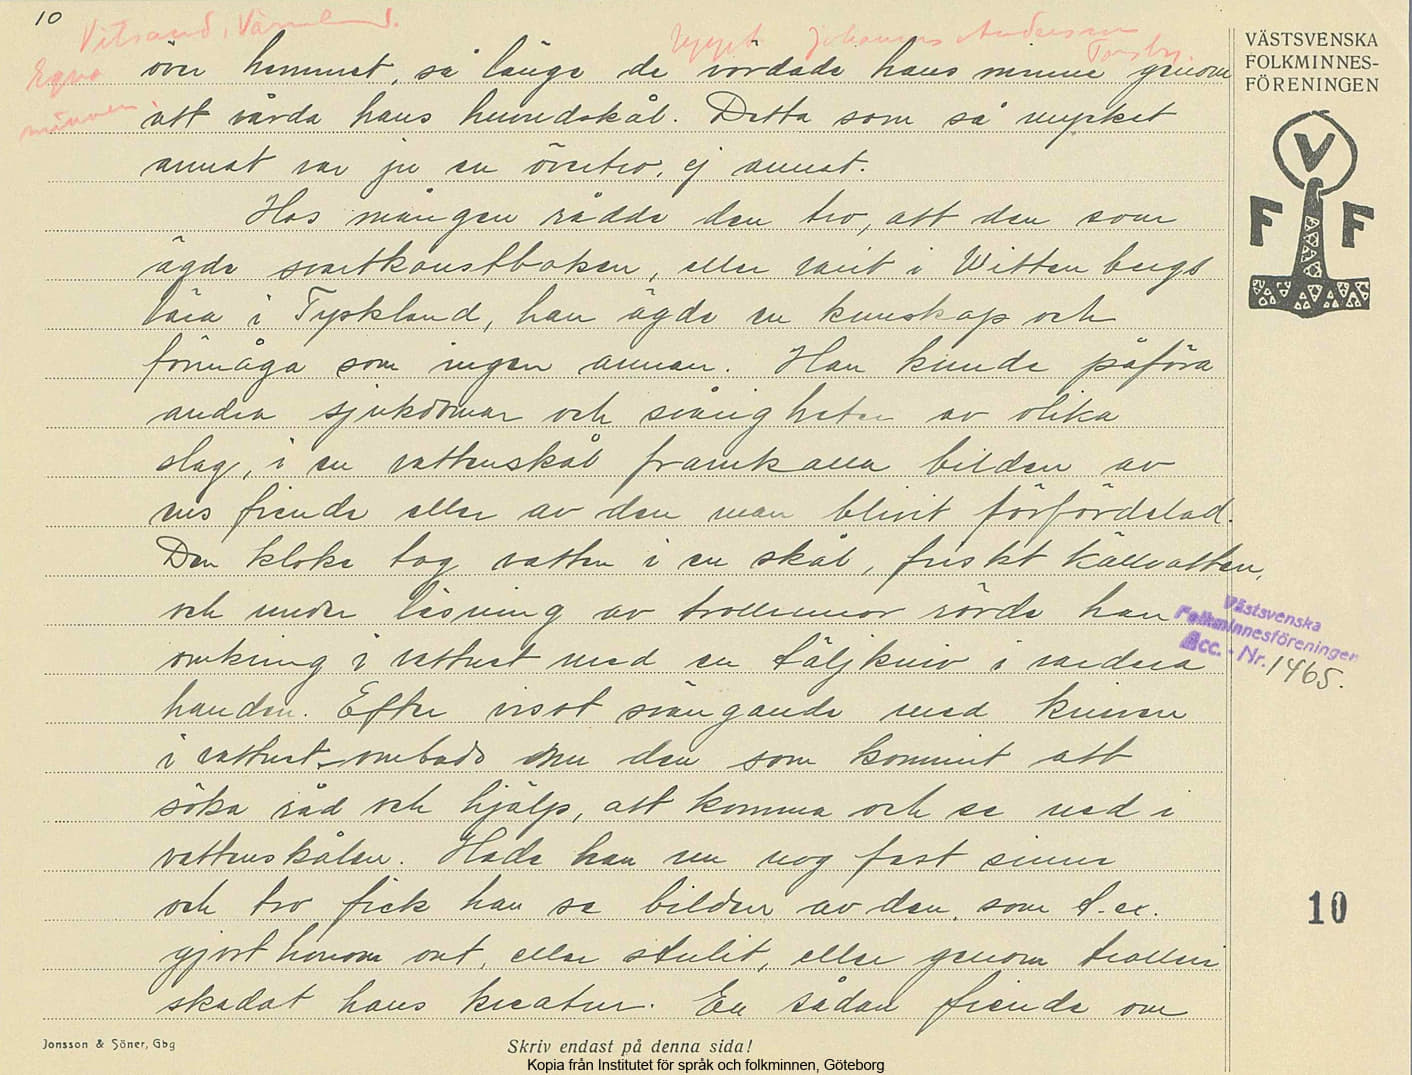 10
Vitsand, Värmland.
uppt. Johannes Andersson
Torsby.
Egna
minnen.
över hemmet, så länge de vördade hans minne genom
att vårda hans hundskål. Detta som så mycket
annat var ju en övertro, ej annat.
Hos mången rådde den tro, att den som
ägde svartkonstboken, eller varit i Wittenbergs
lära i Tyskland, han ägde en kunskap och
förmåga som ingen annan. Han kunde påföra
andra sjukdomar och svårigheter av olika
slag, i en vattenskål framkalla bilden av
ens fiende eller av den man blivit förfördelad.
Den kloke tog vatten i en skål, friskt källvatten,
och under läsning av trollrunor rörde han
omkring i vattnet med en täljkniv i vardera
handen. Efter visst svängande med kniven
i vattnet ombads nu den som kommit att
söka råd och hjälp, att komma och se ned i
vattenskålen. Hade han nu nog fast sinne
och tro fick han se bilden av den, som t.ex.
gjort honom ont, eller stulit, eller genom trolleri
skadat hans kreatur. En sådan fiende om
VÄSTSVENSKA
FOLKMINNES-
FÖRENINGEN
V
F F
Västsvenska
Folkminnesföreningen
Acc. - Nr. 1465.
10
Jonsson & Söner, Gbg
Skriv endast på denna sida!
Kopia från Institutet för språk och folkminnen, Göteborg